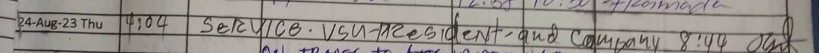 24-Aug-23 Thu 4:04 Service. VSU-President-and Company 8:44